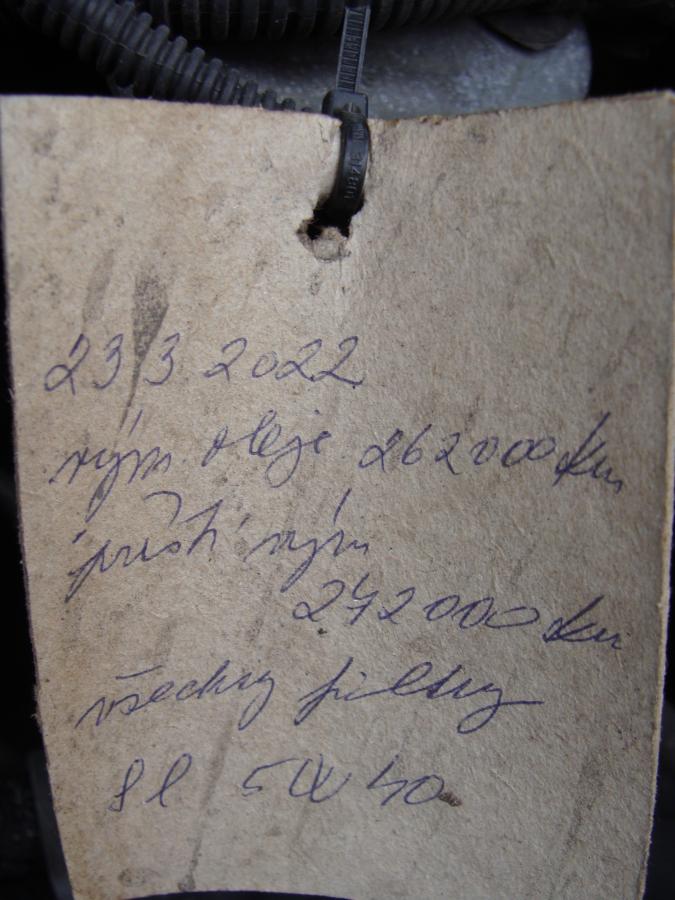 23 3 2022
vým. oleje 262000 km
příští vým
272000 km
všechny filtry
8l 5W40